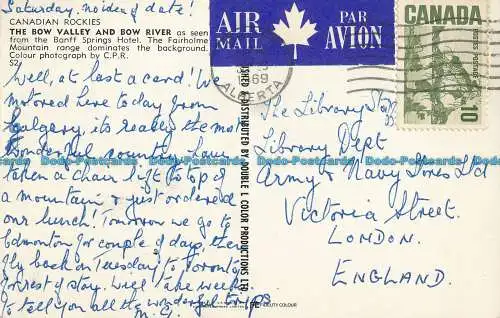 Saturday, no idea of date!
CANADIAN ROCKIES
THE BOW VALLEY AND BOW RIVER as seen
from the Banff Springs Hotel. The Fairholme
Mountain range dominates the background.
Colour photograph by C.P.R.
Well, at last a card! We
motored here to-day from
Calgary, its really the most
wonderful country, have
taken a chair lift to the top of
a mountain & just ordered
our lunch! Tomorrow we go to
Edmonton for couple of days, then
fly back on Tuesday to Toronto
for rest of stay. Will take weeks
to tell you all the wonderful trips
AIR MAIL
PAR AVION
69
ALBERTA
DISTRIBUTED BY DOUBLE L COLOR PRODUCTIONS LTD.
CANADA
POSTES POSTAGE
10
The Library Staff
Library Dept
Army & Navy Stores Ltd
Victoria Street.
LONDON.
ENGLAND.
Dodo-Postcards.com